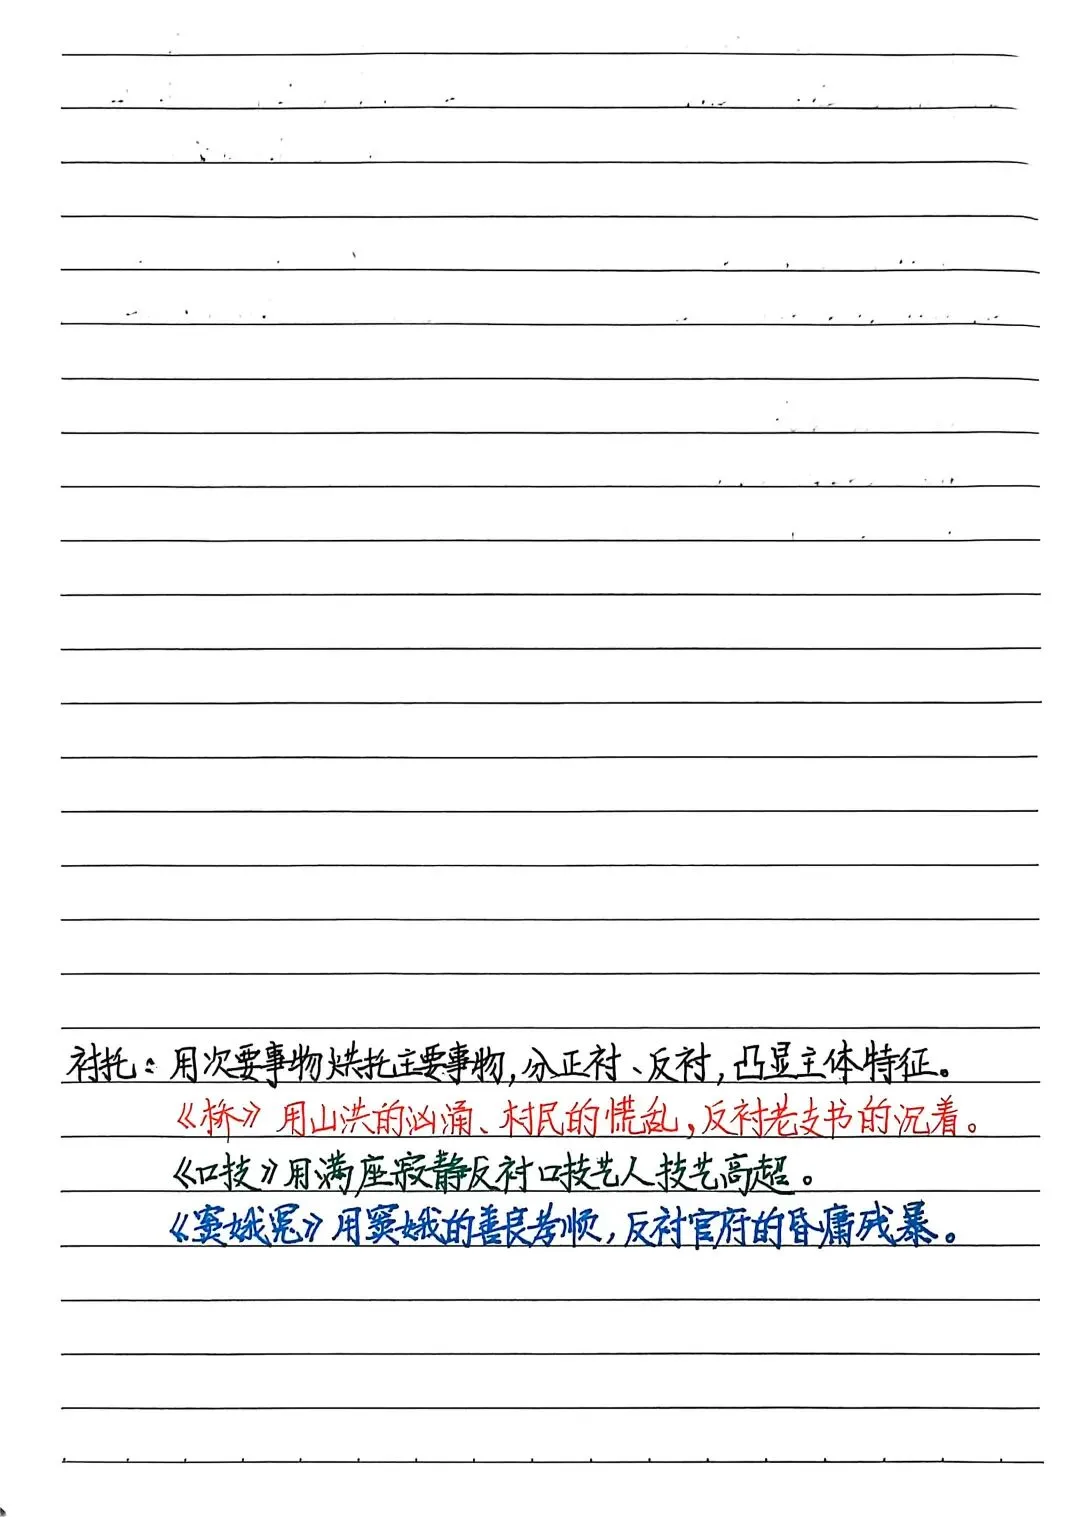 衬托：用次要事物烘托主要事物，分正衬、反衬，凸显主体特征。
《桥》用山洪的汹涌、村民的慌乱，反衬老支书的沉着。
《口技》用满座寂静反衬口技艺人技艺高超。
《窦娥冤》用窦娥的善良孝顺，反衬官府的昏庸残暴。